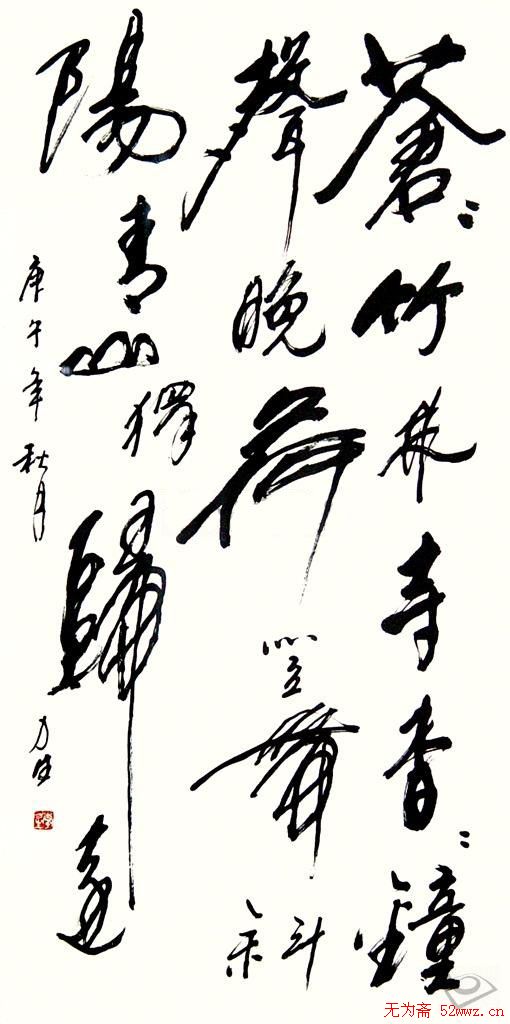 蒼〻竹林寺杳〻鐘
聲晚荷笠帶斜
陽青山獨歸遠
庚午年秋月
无为斋 52wwz.cn